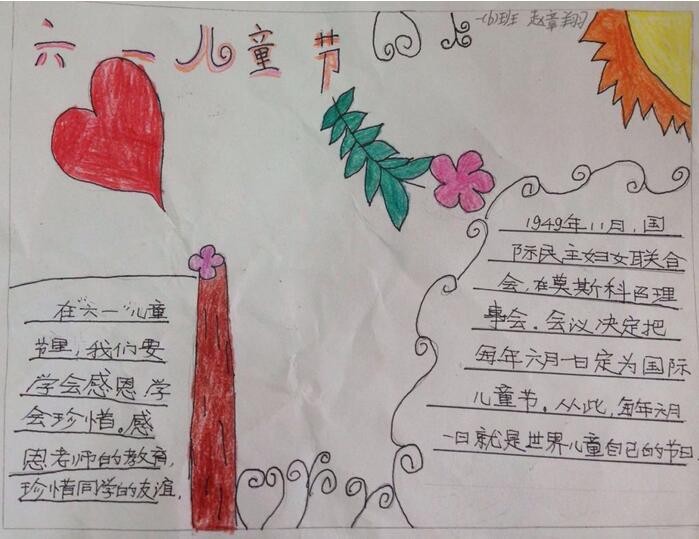 六一儿童节
一(6)班 赵章翔
在"六一"儿童
节里,我们要
学会感恩,学
会珍惜。感
恩老师的教育,
珍惜同学的友谊,
1949年11月,国
际民主妇女联合
会,在莫斯科召理
事会。会议决定把
每年六月一日定为国际
儿童节。从此,每年六月
一日就是世界儿童自己的节日.